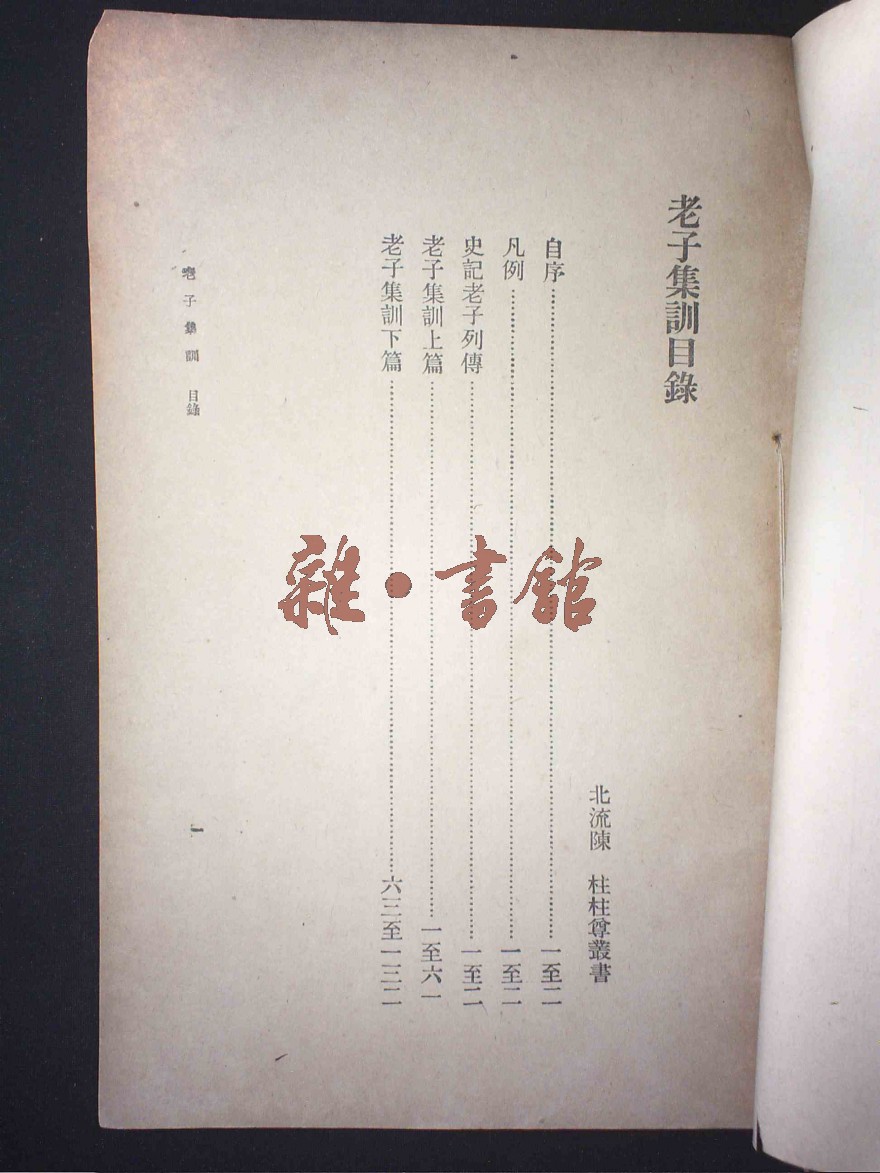 老子集訓目錄
北流陳　柱柱尊叢書
自序……一至二
凡例……一至二
史記老子列傳……一至二
老子集訓上篇……一至六一
老子集訓下篇……六三至一三二
老子集訓　目錄
一
雜・書館